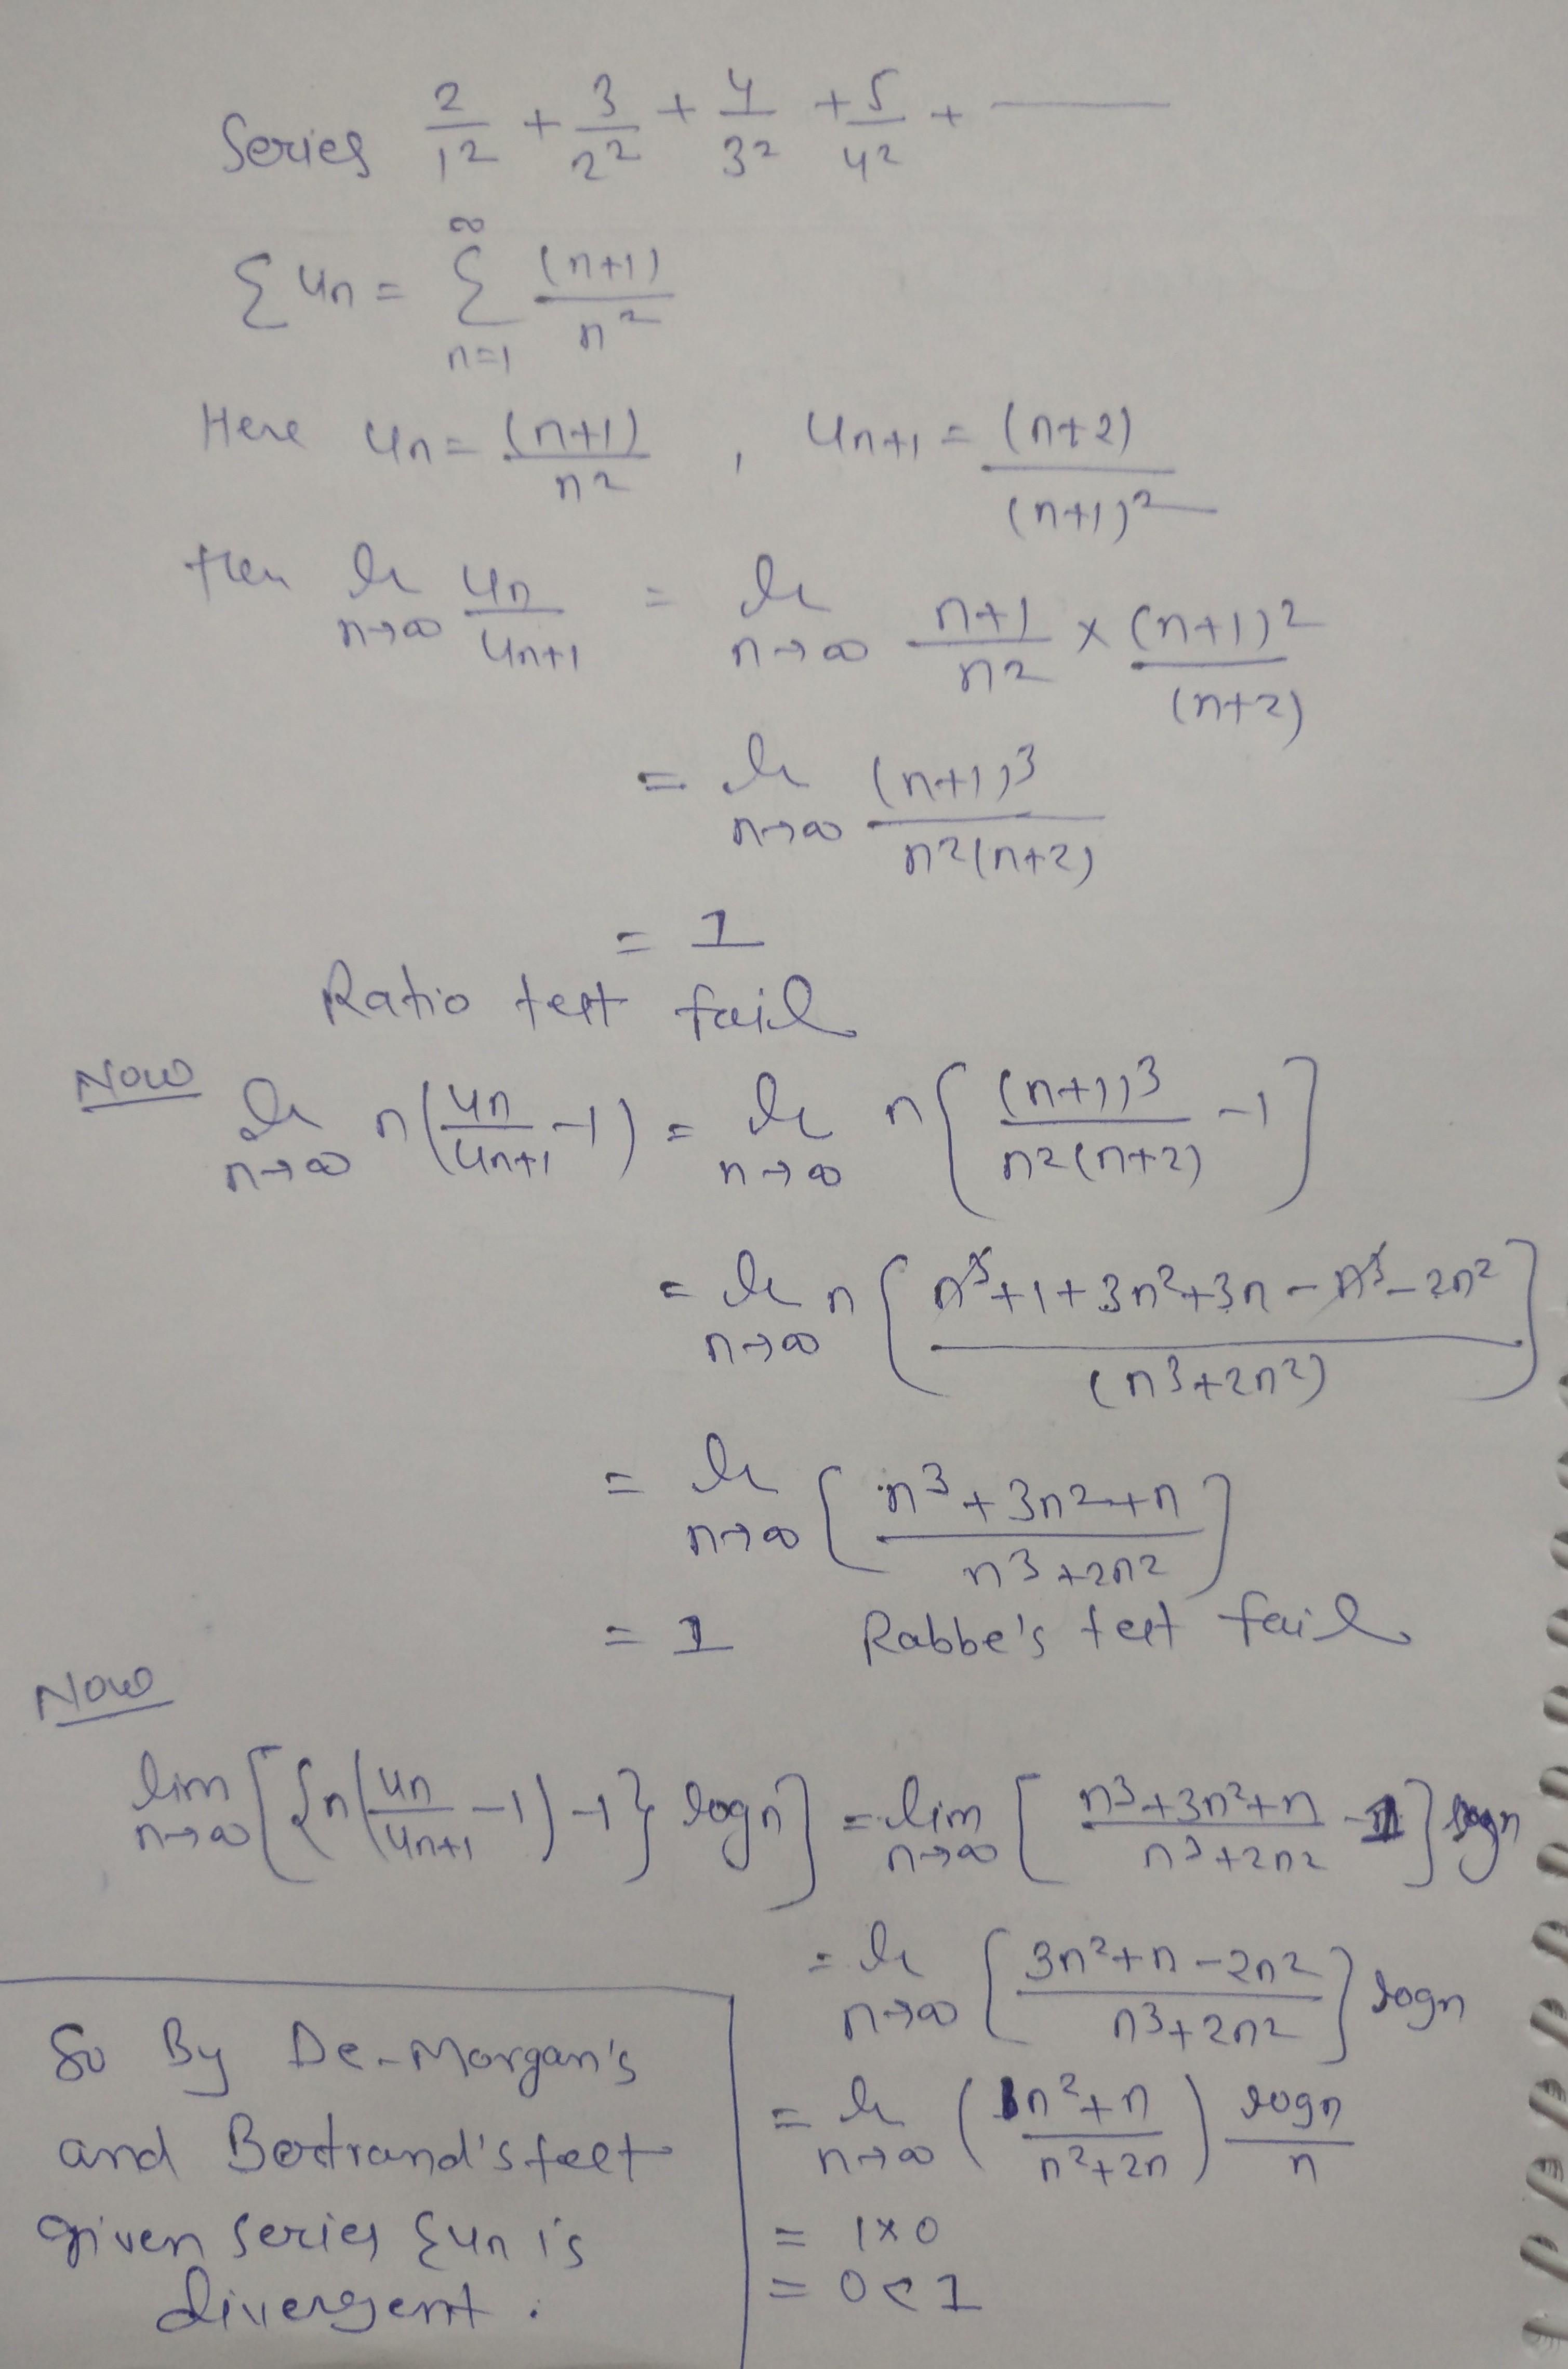 Series 2/1² + 3/2² + 4/3² + 5/4² + ———
Σ un = Σ_{n=1}^{∞} (n+1)/n²
Here un = (n+1)/n² , un+1 = (n+2)/(n+1)²
then lt_{n→∞} un/un+1 = lt_{n→∞} n+1/n² × (n+1)²/(n+2)
= lt_{n→∞} (n+1)³/n²(n+2)
= 1
Ratio test fail
Now lt_{n→∞} n(un/un+1 -1) = lt_{n→∞} n[(n+1)³/n²(n+2) -1]
= lt_{n→∞} n[n³+1+3n²+3n-n³-2n²/(n³+2n²)]
= lt_{n→∞} [n³+3n²+n/n³+2n²]
= 1 Rabbe's test fail
Now
lim_{n→∞} [{n(un/un+1 -1)-1} logn] = lim_{n→∞} [n³+3n²+n/n³+2n² -1] logn
= lt_{n→∞} [3n²+n-2n²/n³+2n²] logn
= lt_{n→∞} (n²+n/n²+2n) logn/n
= 1×0
= 0<1
So By De-Morgan's
and Bertrand's test
given series Σun is
divergent.